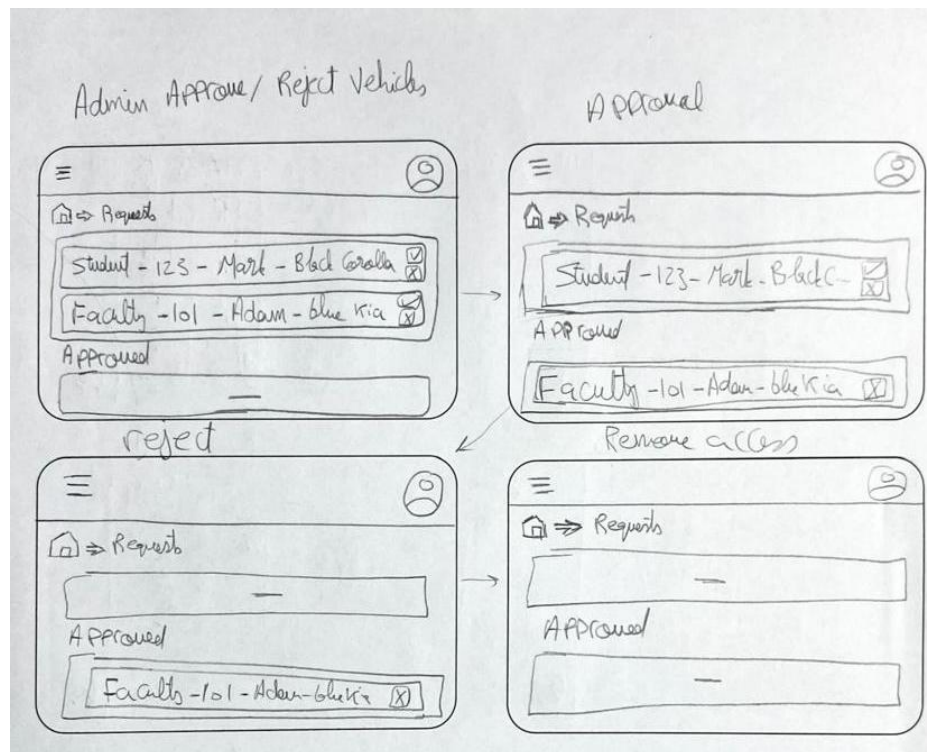 Admin Approve/ Reject Vehicles
Requests
Student - 123 - Mark - Black Corolla
Faculty - 101 - Adam - blue Kia
Approved
Approval
Requests
Student - 123 - Mark - Black C...
Approved
Faculty - 101 - Adam - blue Kia
reject
Requests
Approved
Faculty - 101 - Adam - blue Kia
Remove access
Requests
Approved